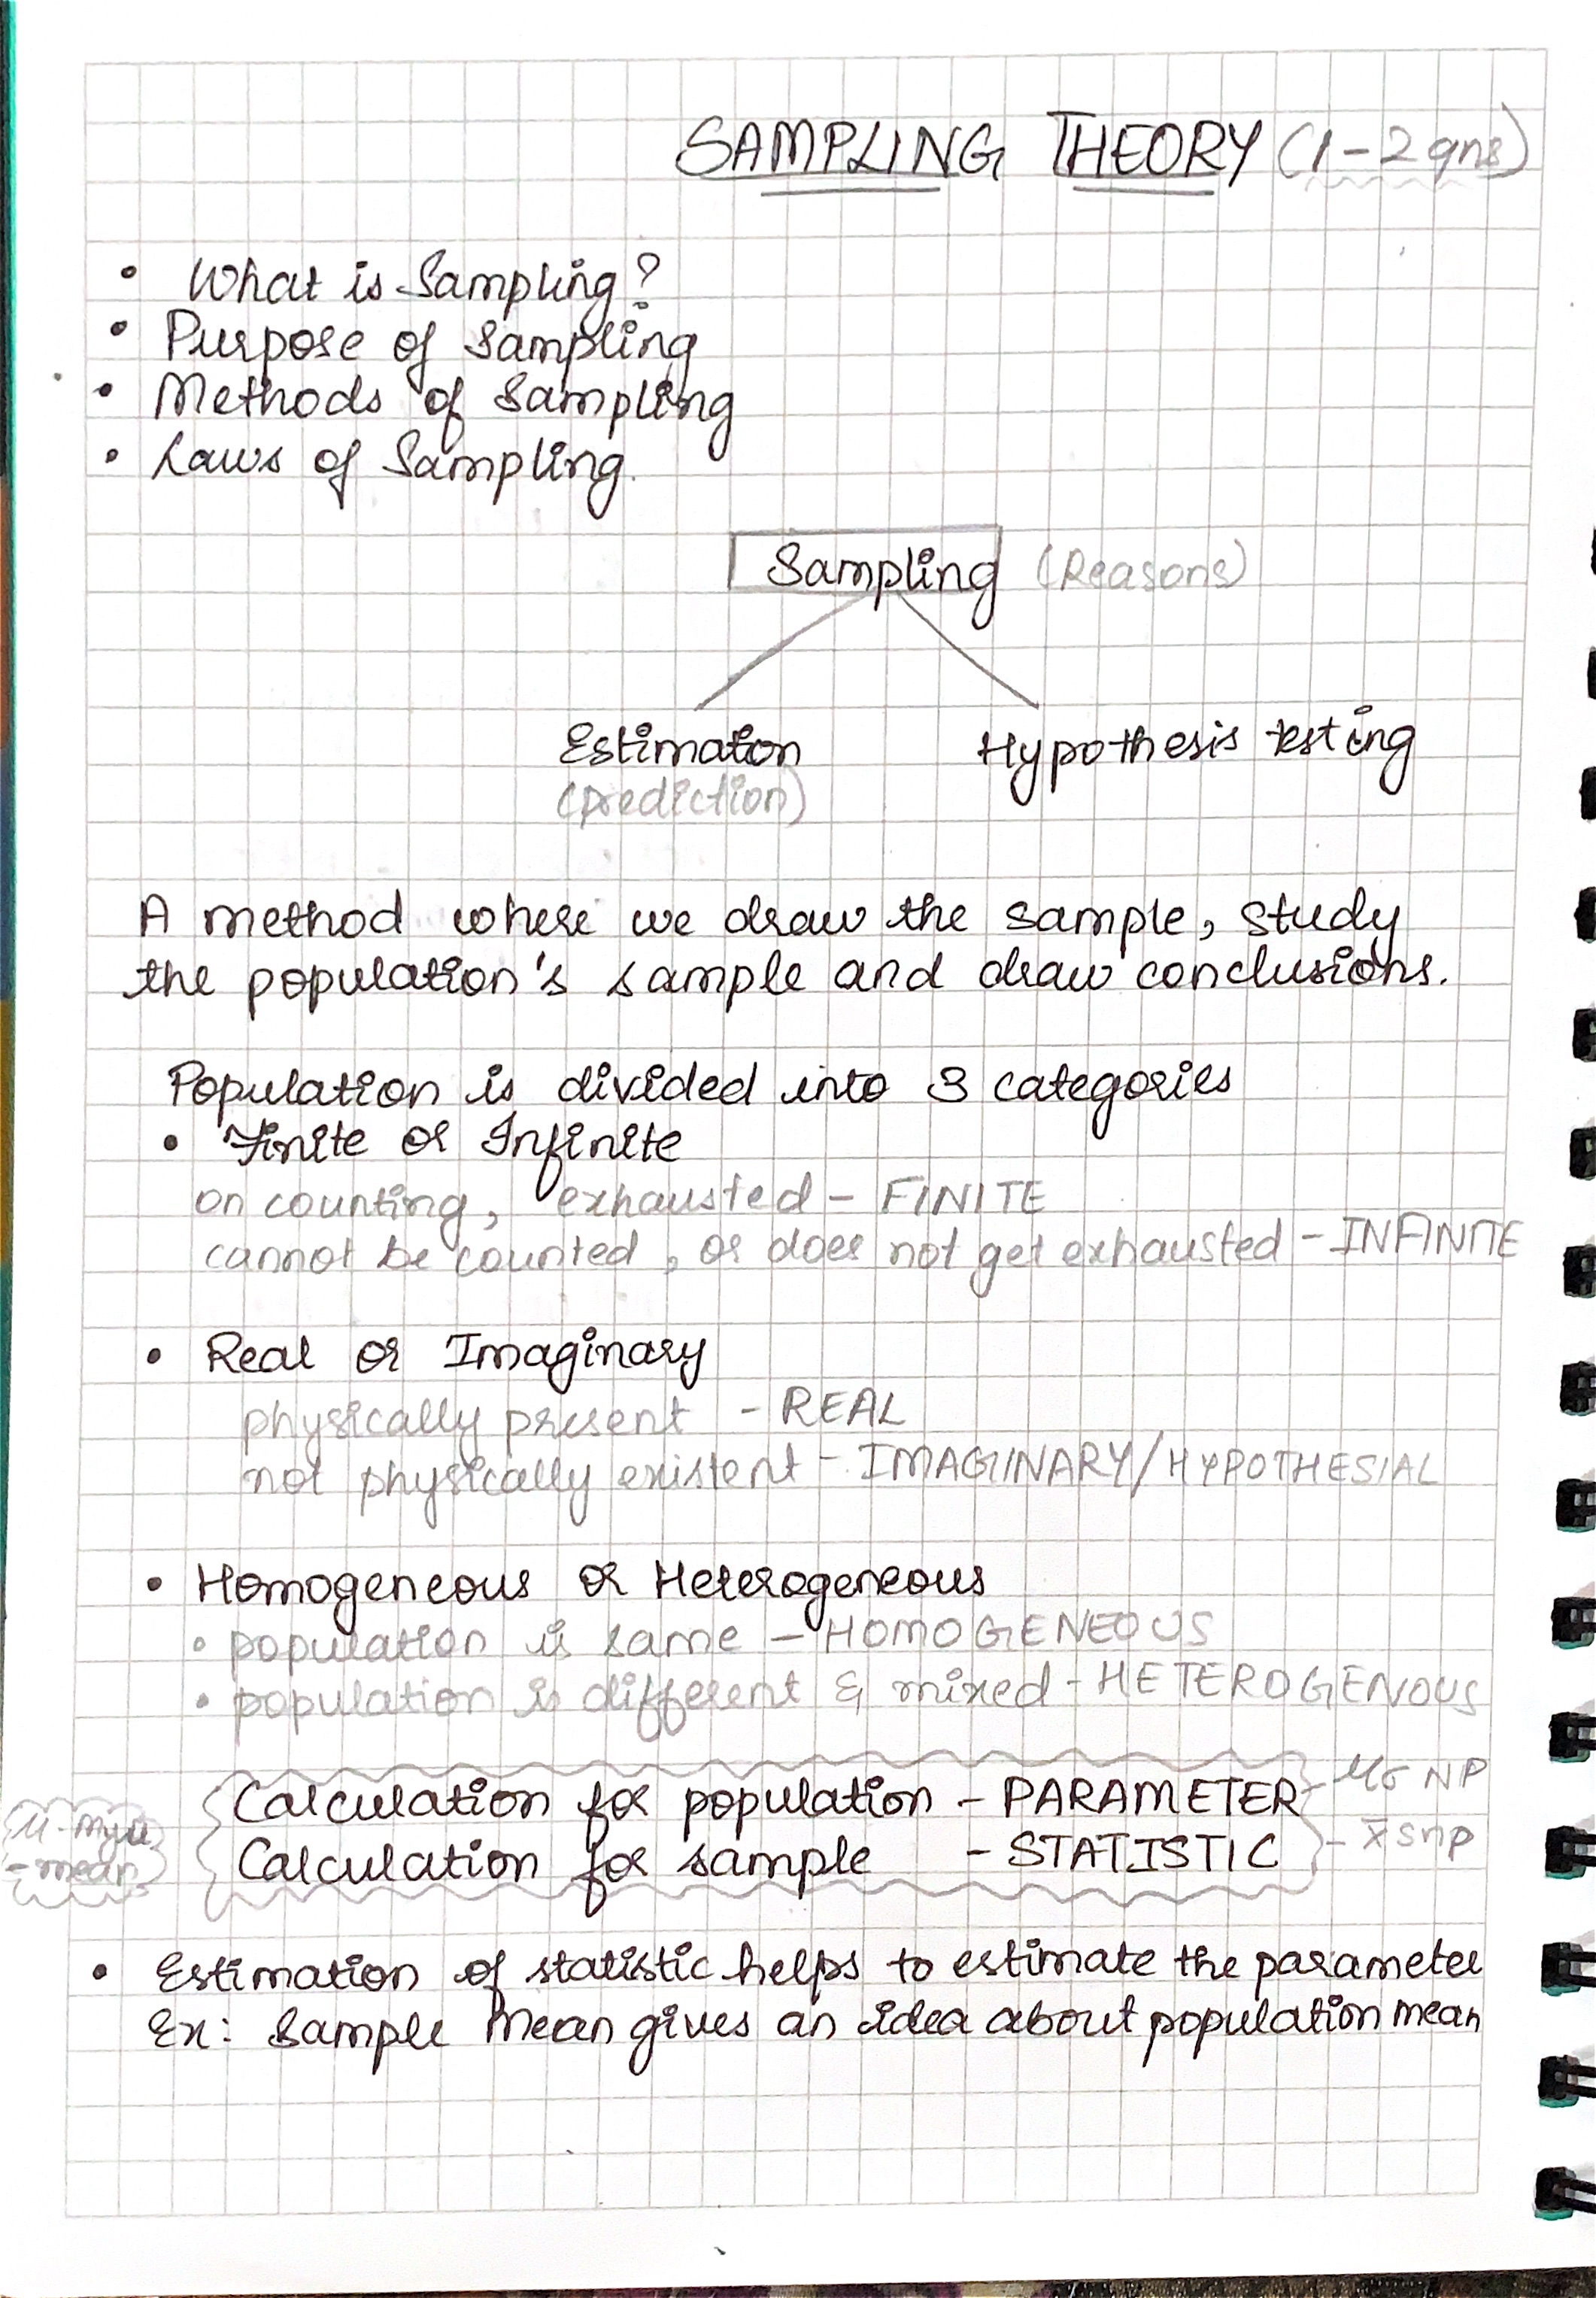 SAMPLING THEORY (1-2 qns)
• What is Sampling?
• Purpose of Sampling
• Methods of Sampling
• Laws of Sampling.
Sampling (Reasons)
Estimation Hypothesis testing
(prediction)
A method where we draw the sample, study
the population's sample and draw conclusions.
Population is divided into 3 categories
• Finite or Infinite
on counting, exhausted - FINITE
cannot be counted, or does not get exhausted - INFINITE
• Real or Imaginary
physically present - REAL
not physically existent - IMAGINARY/HYPOTHESIAL
• Homogeneous or Heterogeneous
• population is same - HOMOGENEOUS
• population is different & mixed - HETEROGENOUS
Calculation for population - PARAMETER - μσ NP
μ - myu
Calculation for sample - STATISTIC - x̄ s n p
- mean
• Estimation of statistic helps to estimate the parameter
Ex: Sample Mean gives an idea about population mean